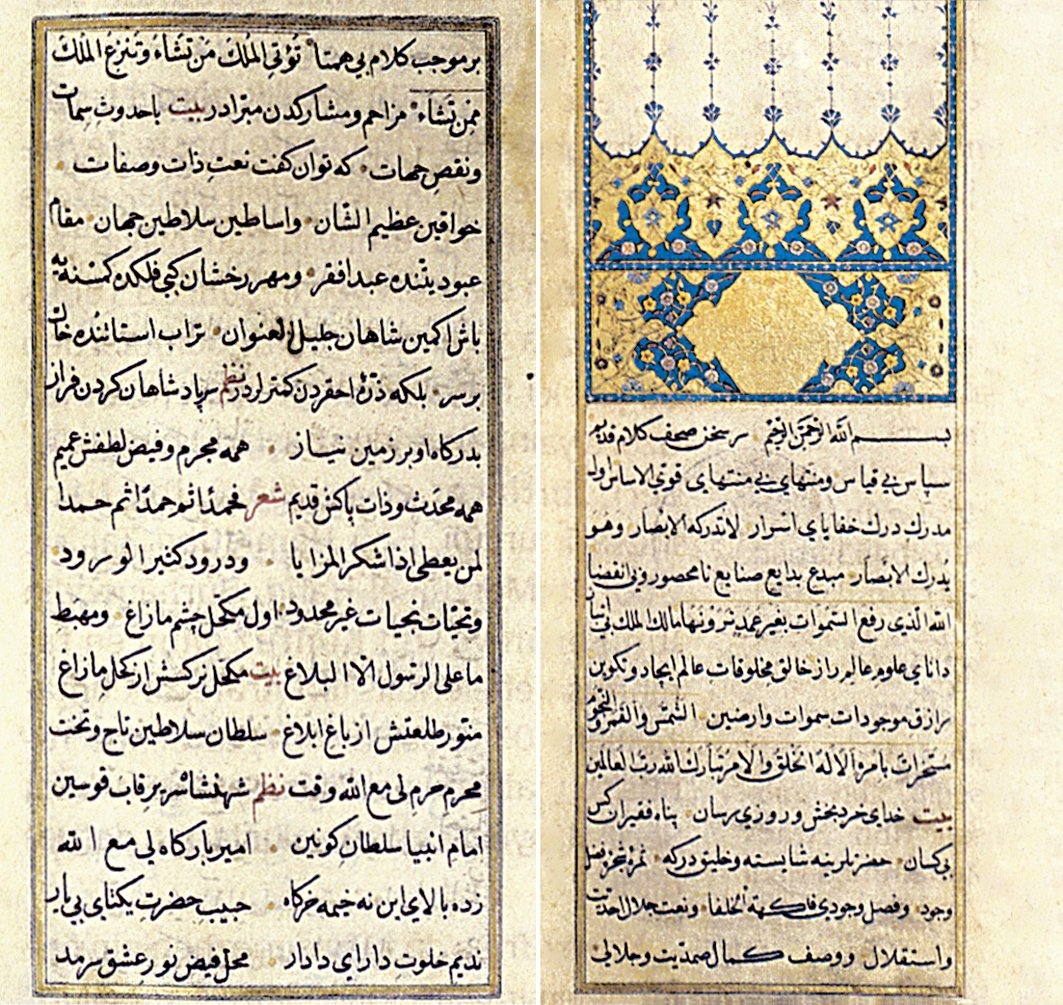 بسم الله الرحمن الرحیم سر سخن صحف کلام قدیم
سپاس بی قیاس و منتهای بی منتهای قوی الاساس اول
مدرك درك خفایای اسرار لاتدركه الابصار وهو
یدرك الابصار مبدع بدایع صنایع نامحصور و بی انقضا
الله الذی رفع السموات بغیر عمد ترونها مالك الملك
دانای علوم عالم راز خالق مخلوقات عالم ایجاد و تكوین
رازق موجودات سموات وارضین الشمس والقمر والنجوم
مسخرات بامره الا له الخلق والامر تبارك الله رب العالمین
بیت خدای خرد بخش و روزی رسان پناه فقیران كس
بی كسان حضرتلرینه شایسته و خلیق درگه
وجود وفصل وجودی فاكهة الخلفا ونعت جلال احدیت
واستقلال ووصف كمال صمدیت وجلالی
بر موجب كلام بی همتا تؤتی الملك من تشاء وتنزع الملك
ممن تشاء مزاحم ومشاركدن مبرادر بیت باحدوث سمات
ونقص جهات كه توان كفت نعت ذات وصفات
خواقین عظیم الشان واساطین سلاطین جهان مقام
عبودیتنده عبد افقر ومهر رخشان كبی فلكده كمسنه یه
باش اكمین شاهان جلیل العنوان تراب استاننده خاك
بر سر بلكه ذرهٔ احقردن كمترلردر نظم سر پادشاهان كردن فراز
بدركاه او بر زمین نیاز همه مجرم وفیض لطفش عمیم
همه محدث وذات پاكش قدیم شعر فحمدا ثم حمدا ثم حمدا
لمن یعطی اذا شكر المزایا ودرود كثیر الورود
وتحیات نجیات غیر محدود اول مكحل چشم مازاغ ومهبط
ما علی الرسول الا البلاغ بیت مكحل نركسش از كحل مازاغ
منور طلعتش از باغ ابلاغ سلطان سلاطین تاج وتخت
محرم حرم لی مع الله وقت نظم شهنشاه سریر قاب قوسین
امام انبیا سلطان كونین امیر باركاه لی مع الله
زده بالای این نه خیمه خركاه حبیب حضرت یكتای بی یار
ندیم خلوت دارای دادار محل فیض نور عشق سرمد